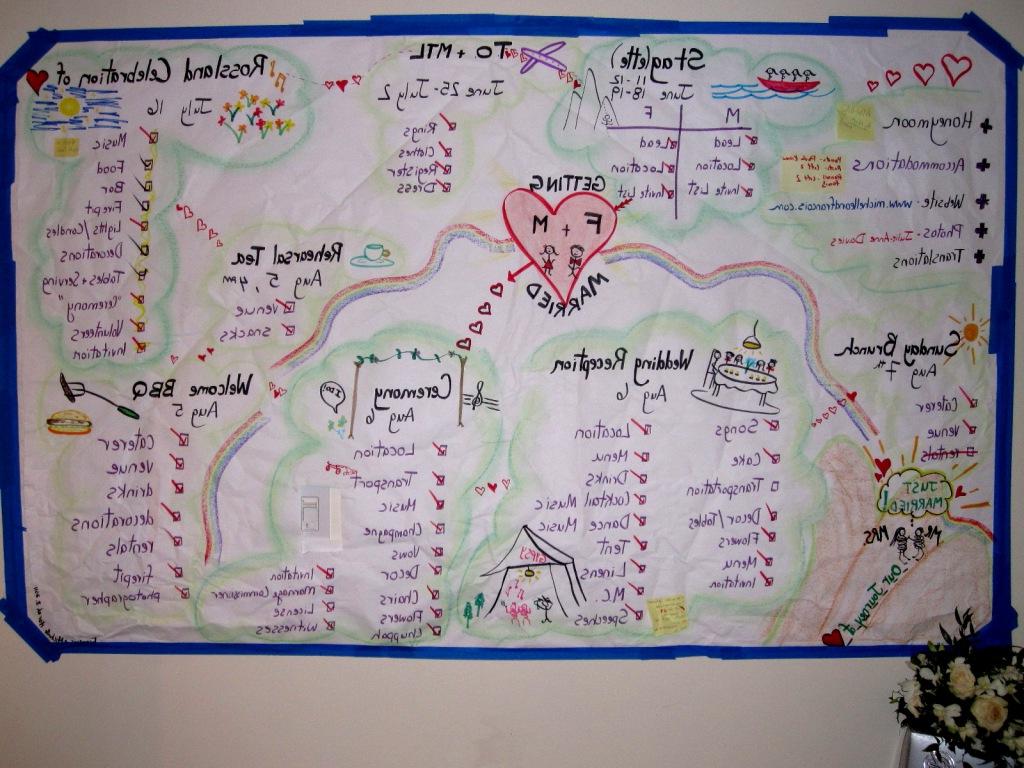 Honeymoon
Accommodations
Website - www.michelleandfrancois.com
Photos - Julie-Anne Davies
Translations
Stag(ette)
June 11-12
18-19
M F
Lead Lead
Location Location
Invite List Invite List
TO + MTL
June 25-July 2
Rings
Clothes
Register
Dress
Rossland Celebration of
July 16
Music
Food
Bar
Firepit
Lights/Candles
Decorations
Tables + Serving
"Ceremony"
Volunteers
Invitation
GETTING
F + M
MARRIED
Rehearsal Tea
Aug 5, 4pm
venue
snacks
Sunday Brunch
Aug 7th
Caterer
venue
rentals
JUST
MARRIED!
Mr + Mrs
Our Tout
Wedding Reception
Aug 6
Songs
Cake
Transportation
Decor/Tables
Flowers
Menu
Invitation
Location
Menu
Drinks
Cocktail Music
Dance Music
Tent
Linens
M.C.
Speeches
GIPSY
Ceremony
Aug 6
I DO!
Location
Transport
Music
Champagne
Vows
Decor
Chairs
Flowers
Chuppah
Invitation
Marriage Commissioner
License
Witnesses
Welcome BBQ
Aug 5
caterer
venue
drinks
decorations
rentals
firepit
photographer